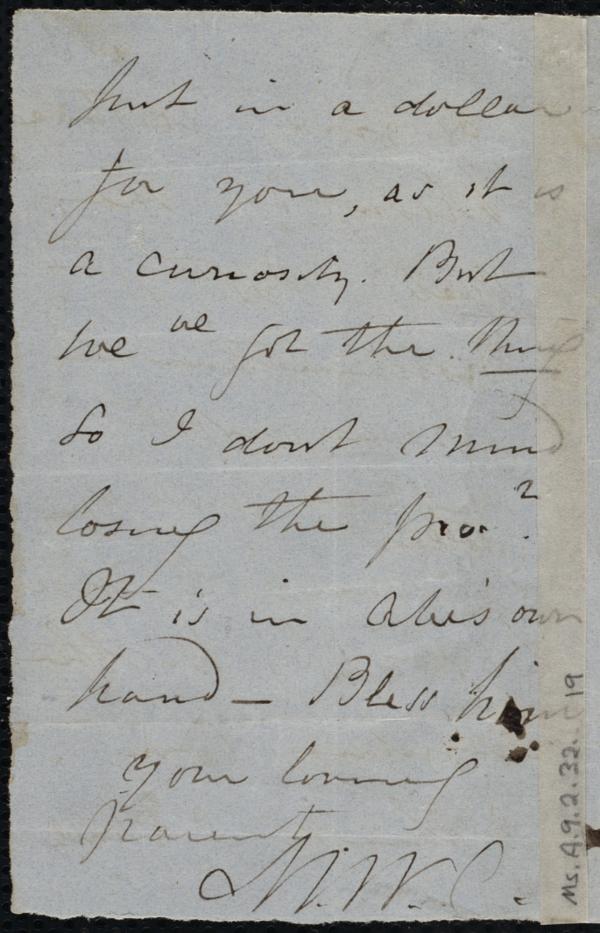 but in a dollar
for you, as it is
a curiosity. But
we ve got the thing
So I dont mind
losing the pro.
It is in Abe's own
hand - Bless him
your loving
parent
M. W. C.
Ms. A.9.2.32. 19